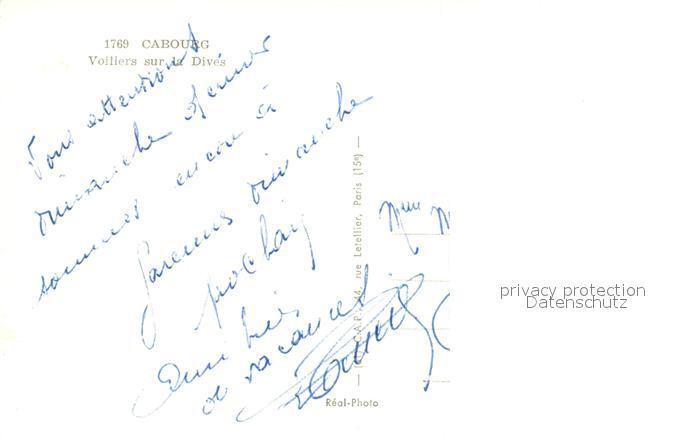 1769 CABOURG
Voiliers sur la Dives
Vous attendions
dimanche
sommes encore à
Garennes dimanche
prochain
Amitiés
de vacances
Mme M
rue Letellier, Paris (15e) —
Réal-Photo
privacy protection
Datenschutz